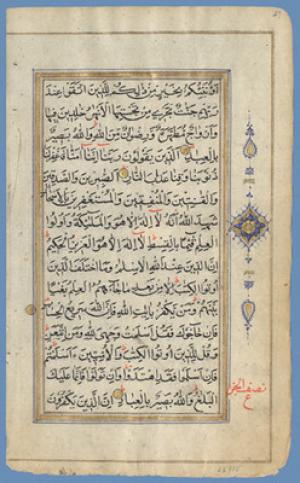 اؤنبئكم بخير من ذلكم للذين اتقوا عند
ربهم جنت تجرى من تحتها الانهر خلدين فيها
وازواج مطهرة ورضوان من الله والله بصير
بالعباد الذين يقولون ربنا اننا امنا فاغفر لنا
ذنوبنا وقنا عذاب النار الصبرين والصدقين
والقنتين والمنفقين والمستغفرين بالاسحار
شهد الله انه لا اله الا هو والملئكة واولوا
العلم قائما بالقسط لا اله الا هو العزيز الحكيم
ان الدين عند الله الاسلم وما اختلف الذين
اوتوا الكتب الا من بعد ما جاءهم العلم بغيا
بينهم ومن يكفر بايت الله فان الله سريع الحساب
فان حاجوك فقل اسلمت وجهى لله ومن اتبعن
وقل للذين اوتوا الكتب والاميين ءاسلمتم
فان اسلموا فقد اهتدوا وان تولوا فانما عليك
البلغ والله بصير بالعباد ان الذين يكفرون
نصف الحزب